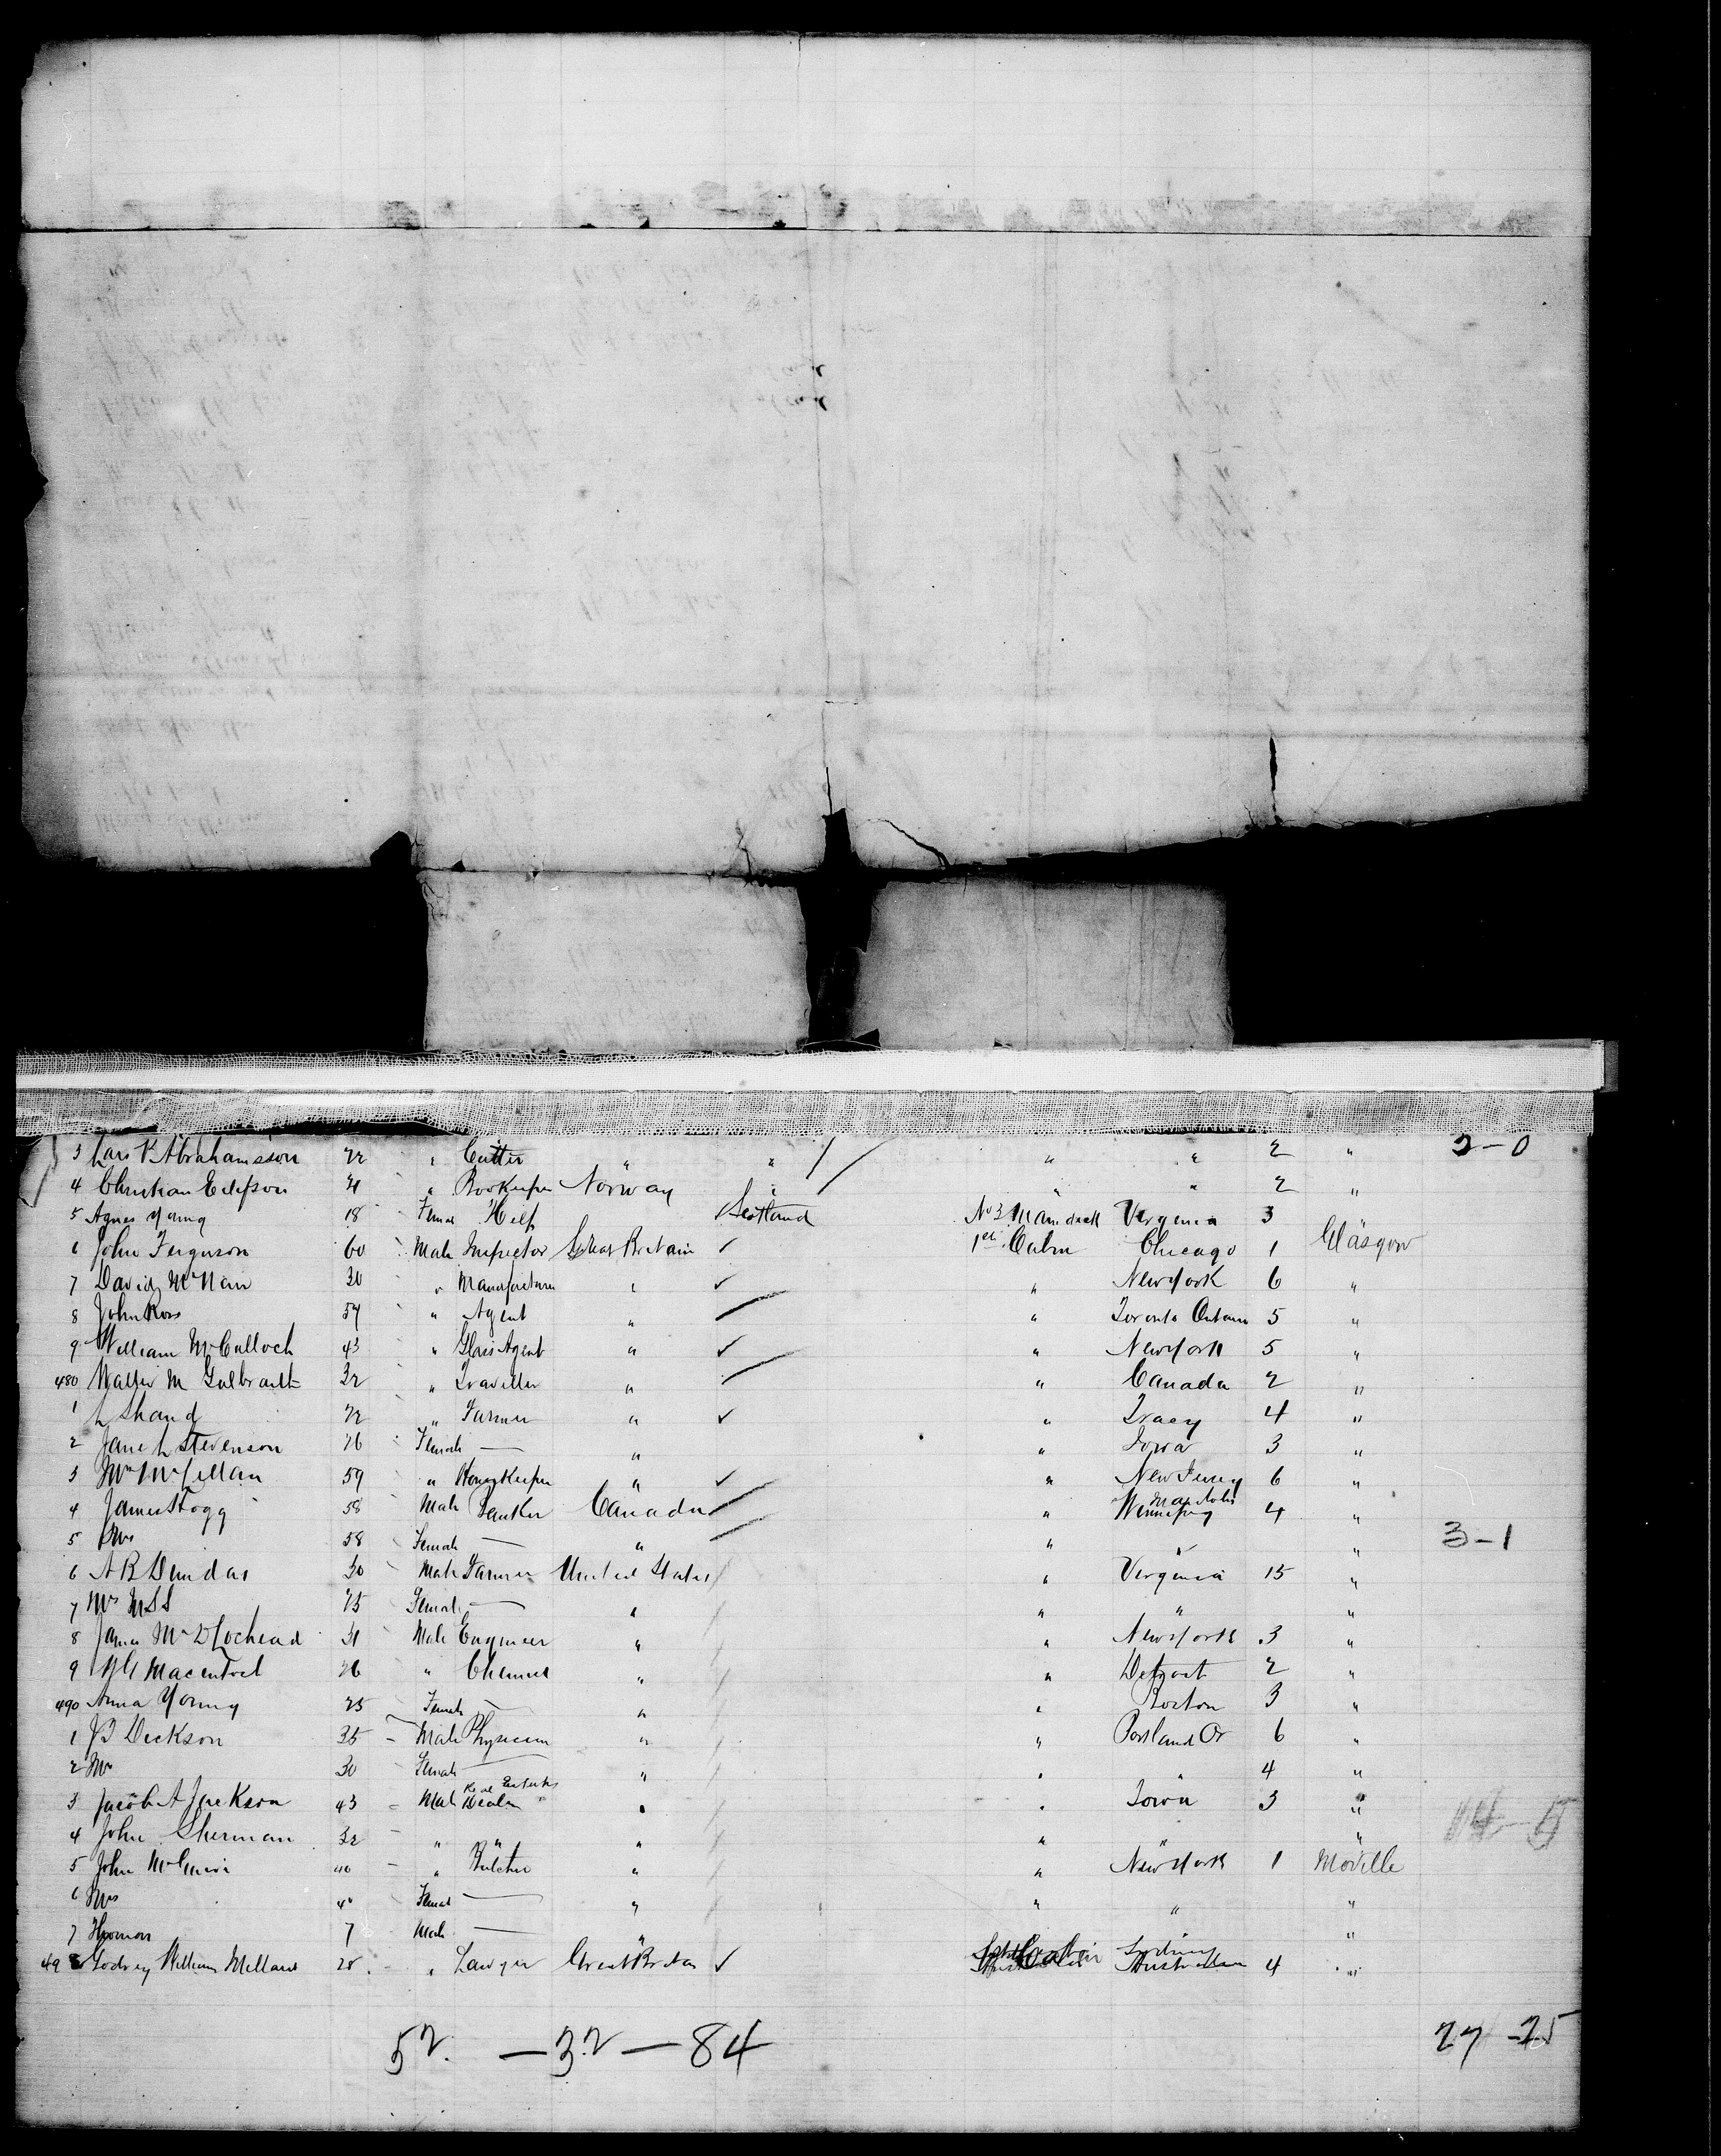 3 Lars P. Abrahamsson 22 " Cutter " " " " 2 " 2-0
4 Christian 21 " Bookeeper Norway " " " 2 "
5 Agnes Young 18 Female Help Scotland No 3 Virginia 3
6 John Ferguson 60 Male Inspector Great Britain 1st Cabin Chicago 1 Glasgow
7 David McNair 30 " Manufacturer " " New York 6 "
8 John Ross 54 " Agent " " Toronto Ontario 5 "
9 William McCulloch 43 " Glass Agent " " New York 5 "
480 Walter M Galbraith 32 " Traveller " " Canada 2 "
1 L Shand 22 " Farmer " " Tracy 4 "
2 Jane L Stevenson 26 Female — " " Iowa 3 "
3 Mrs McLellan 59 " HouseKeeper " " New Jersey 6 "
4 James 58 Male Banker Canada " Manitoba Winnipeg 4 "
5 Mrs 58 Female — " " " " 3-1
6 A B Dundas 30 Male Farmer United States " Virginia 15 "
7 Mrs 25 Female — " " " "
8 James McD Lochead 31 Male Engineer " " New York 3 "
9 Macintosh 26 " Chemist " " Detroit 2 "
490 Anna Young 25 Female — " " Boston 3 "
1 J B Dickson 35 - Male Physician " " Portland Or 6 "
2 Mrs 30 Female — " " " 4 "
3 Jacob A Jackson 43 - Male Real Estate Dealer " " Iowa 3 "
4 John Sherman 32 - " " " " " "
5 John 40 - " Butcher " " New York 1 Moville
6 Mrs 40 - Female — " " " "
7 Thomas 7 Male — " "
498 William 28 - " Lawyer Great Britain Cabin Sydney Australia 4 "
52 — 32 — 84 27 - 25